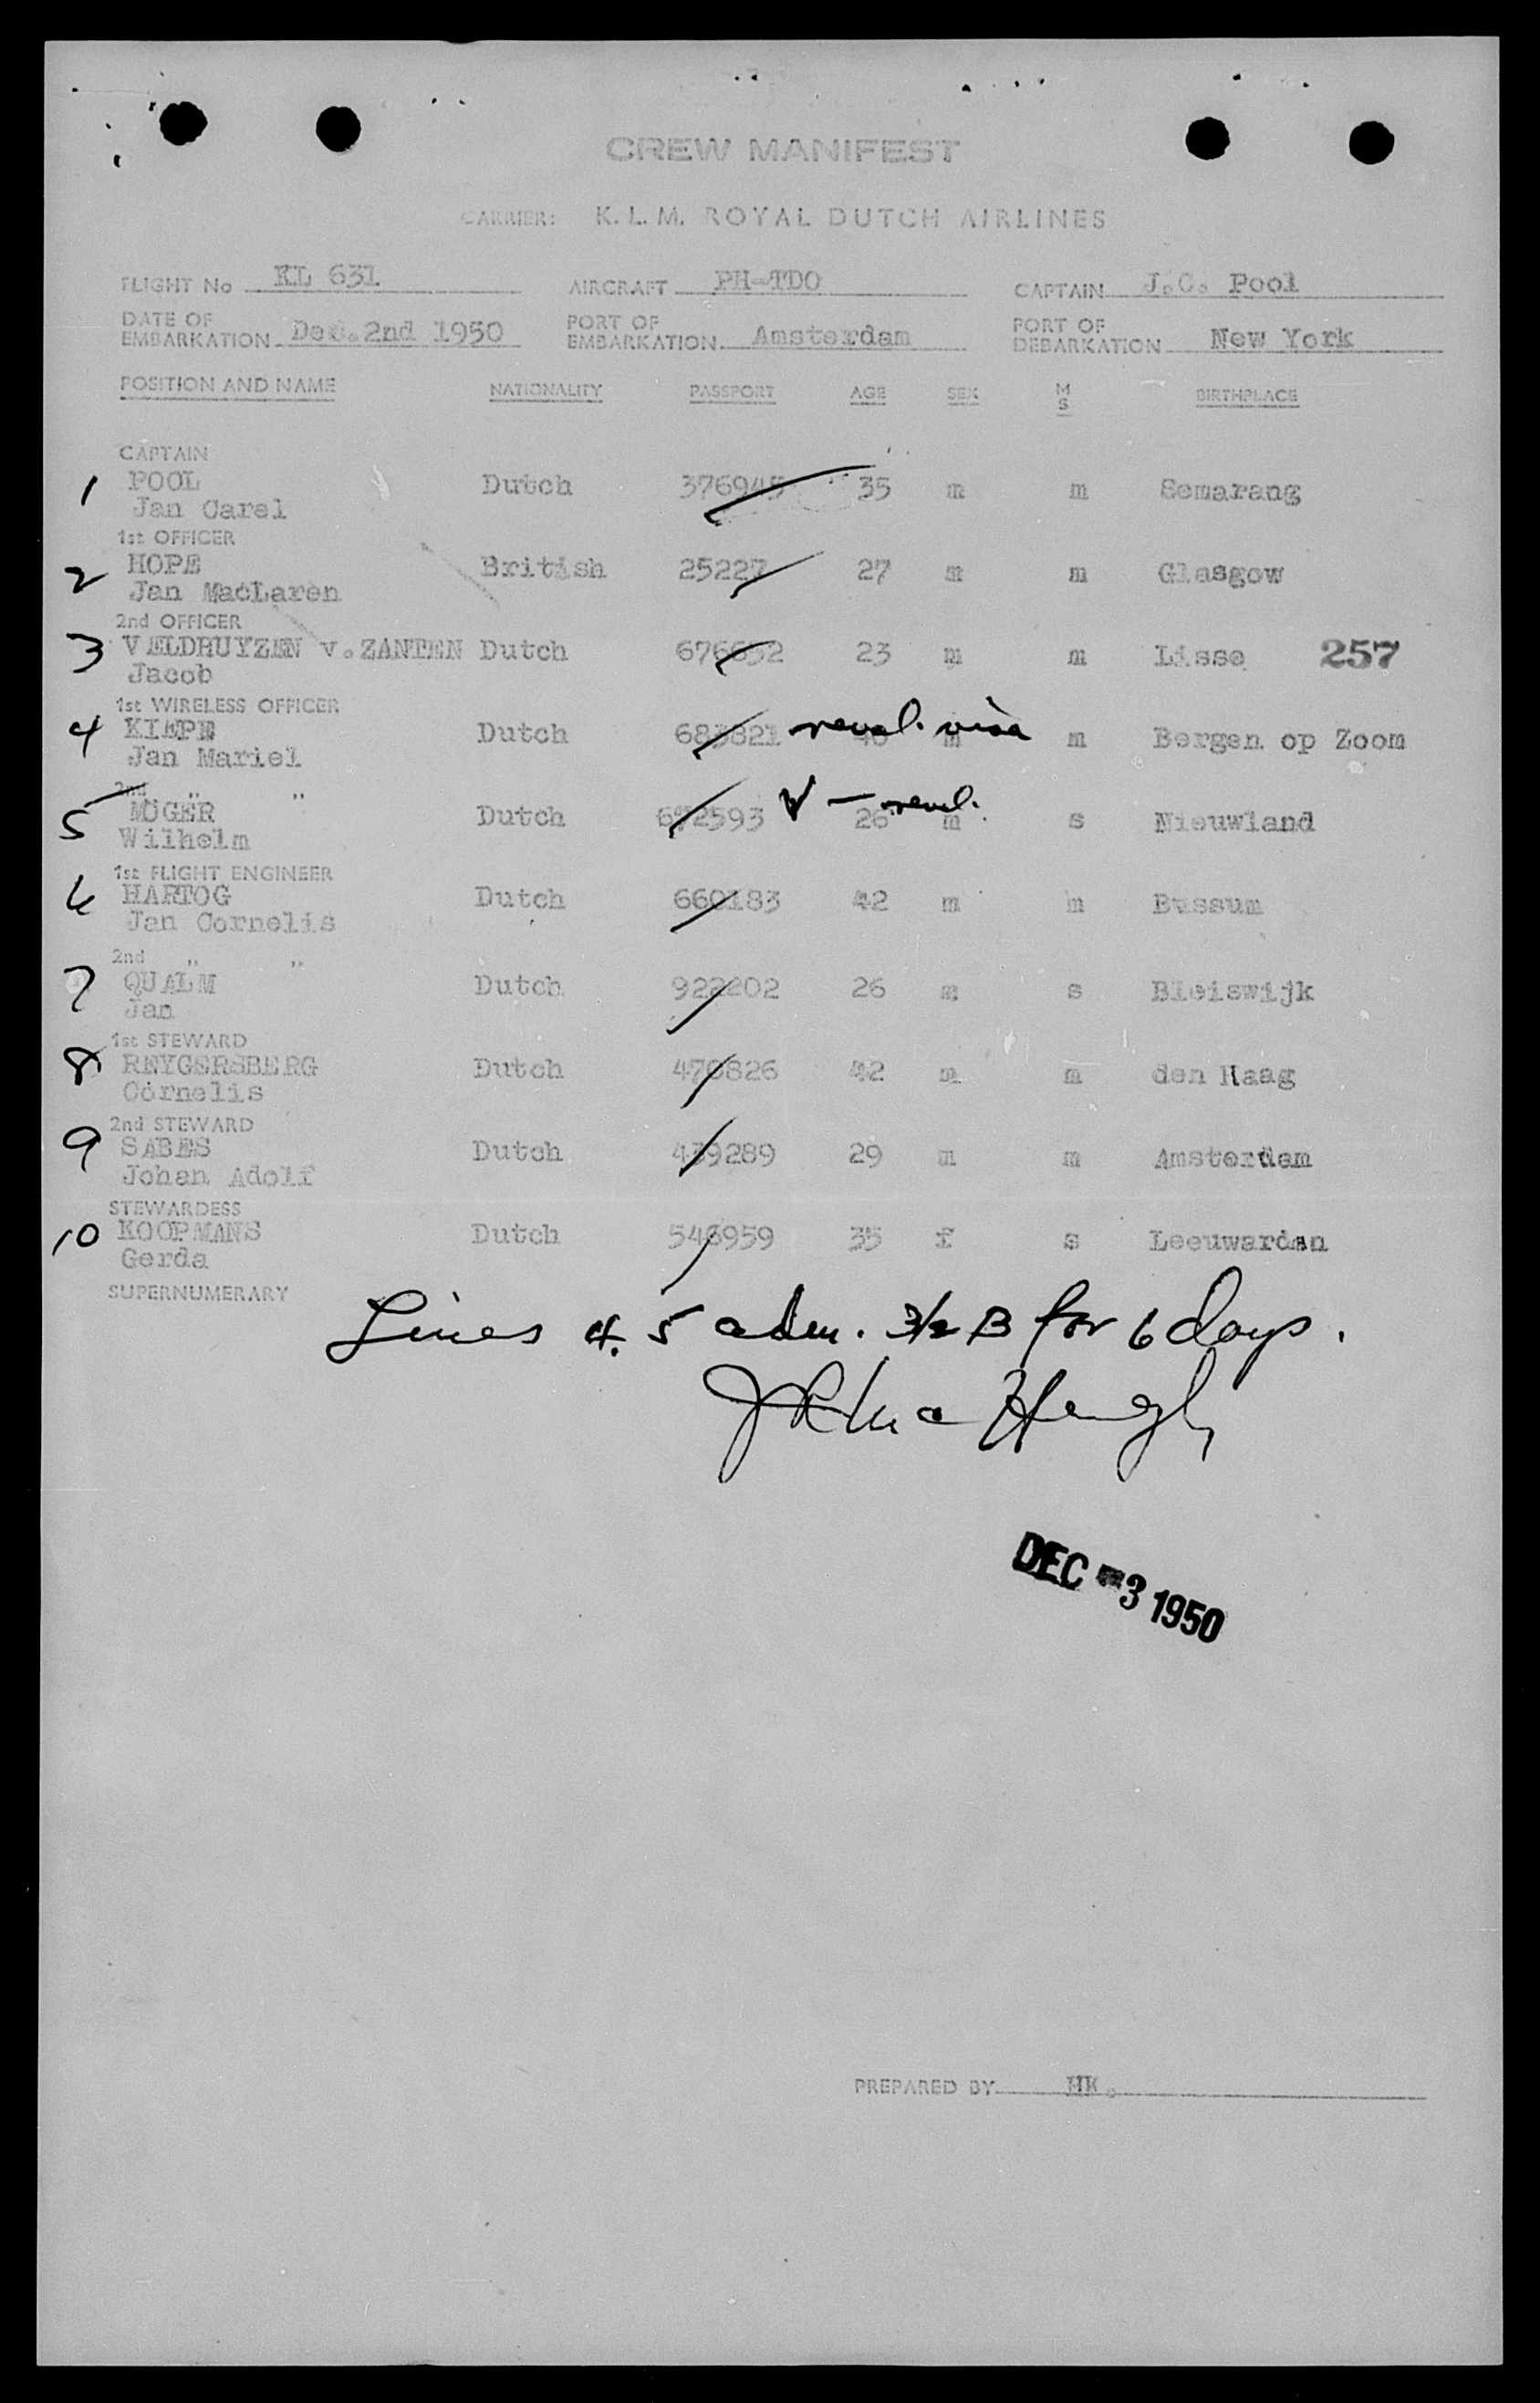 CREW MANIFEST
CARRIER: K.L.M. ROYAL DUTCH AIRLINES
FLIGHT No KL 631 AIRCRAFT PH-TDO CAPTAIN J.C. Pool
DATE OF EMBARKATION Dec.2nd 1950 PORT OF EMBARKATION Amsterdam PORT OF DEBARKATION New York
POSITION AND NAME NATIONALITY PASSPORT AGE SEX M S BIRTHPLACE
CAPTAIN
1 POOL Dutch 376945 35 m m Semarang
Jan Carel
1st OFFICER
2 HOPE British 25227 27 m m Glasgow
Jan MacLaren
2nd OFFICER
3 VELDHUYZEN v.ZANTEN Dutch 676652 23 m m Lisse 257
Jacob
1st WIRELESS OFFICER
4 Dutch m m Bergen op Zoom
Jan Mariel
2nd " "
5 MOGER Dutch 672593 26 m s Nieuwland
Wilhelm
1st FLIGHT ENGINEER
6 HARTOG Dutch 660183 42 m m Bussum
Jan Cornelis
2nd " "
7 QUALM Dutch 922202 26 m s Bleiswijk
Jan
1st STEWARD
8 REYGERSBERG Dutch 470826 42 m m den Haag
Cornelis
2nd STEWARD
9 SABES Dutch 439289 29 m m Amsterdam
Johan Adolf
STEWARDESS
10 KOOPMANS Dutch 546959 35 f s Leeuwarden
Gerda
SUPERNUMERARY
Lines 4. 5 adm. 3/2 B for 6 days.
DEC -3 1950
PREPARED BY HK.